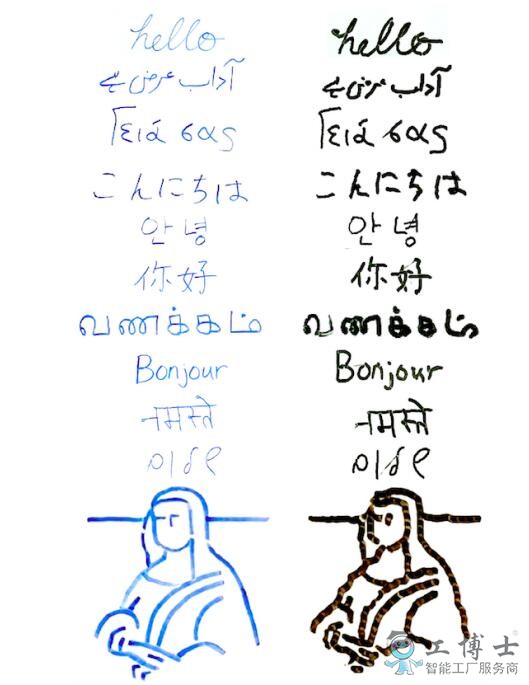 hello hello
آداب عرض ہے آداب عرض ہے
Γειά σας Γειά σας
こんにちは こんにちは
안녕 안녕
你好 你好
வணக்கம் வணக்கம்
Bonjour Bonjour
नमस्ते नमस्ते
שלום שלום
工博士
智能工厂服务商